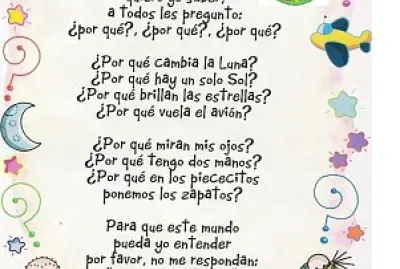 quiero yo saber,
a todos les pregunto:
¿por qué?, ¿por qué?, ¿por qué?
¿Por qué cambia la Luna?
¿Por qué hay un solo Sol?
¿Por qué brillan las estrellas?
¿Por qué vuela el avión?
¿Por qué miran mis ojos?
¿Por qué tengo dos manos?
¿Por qué en los piececitos
ponemos los zapatos?
Para que este mundo
pueda yo entender
por favor, no me respondan: